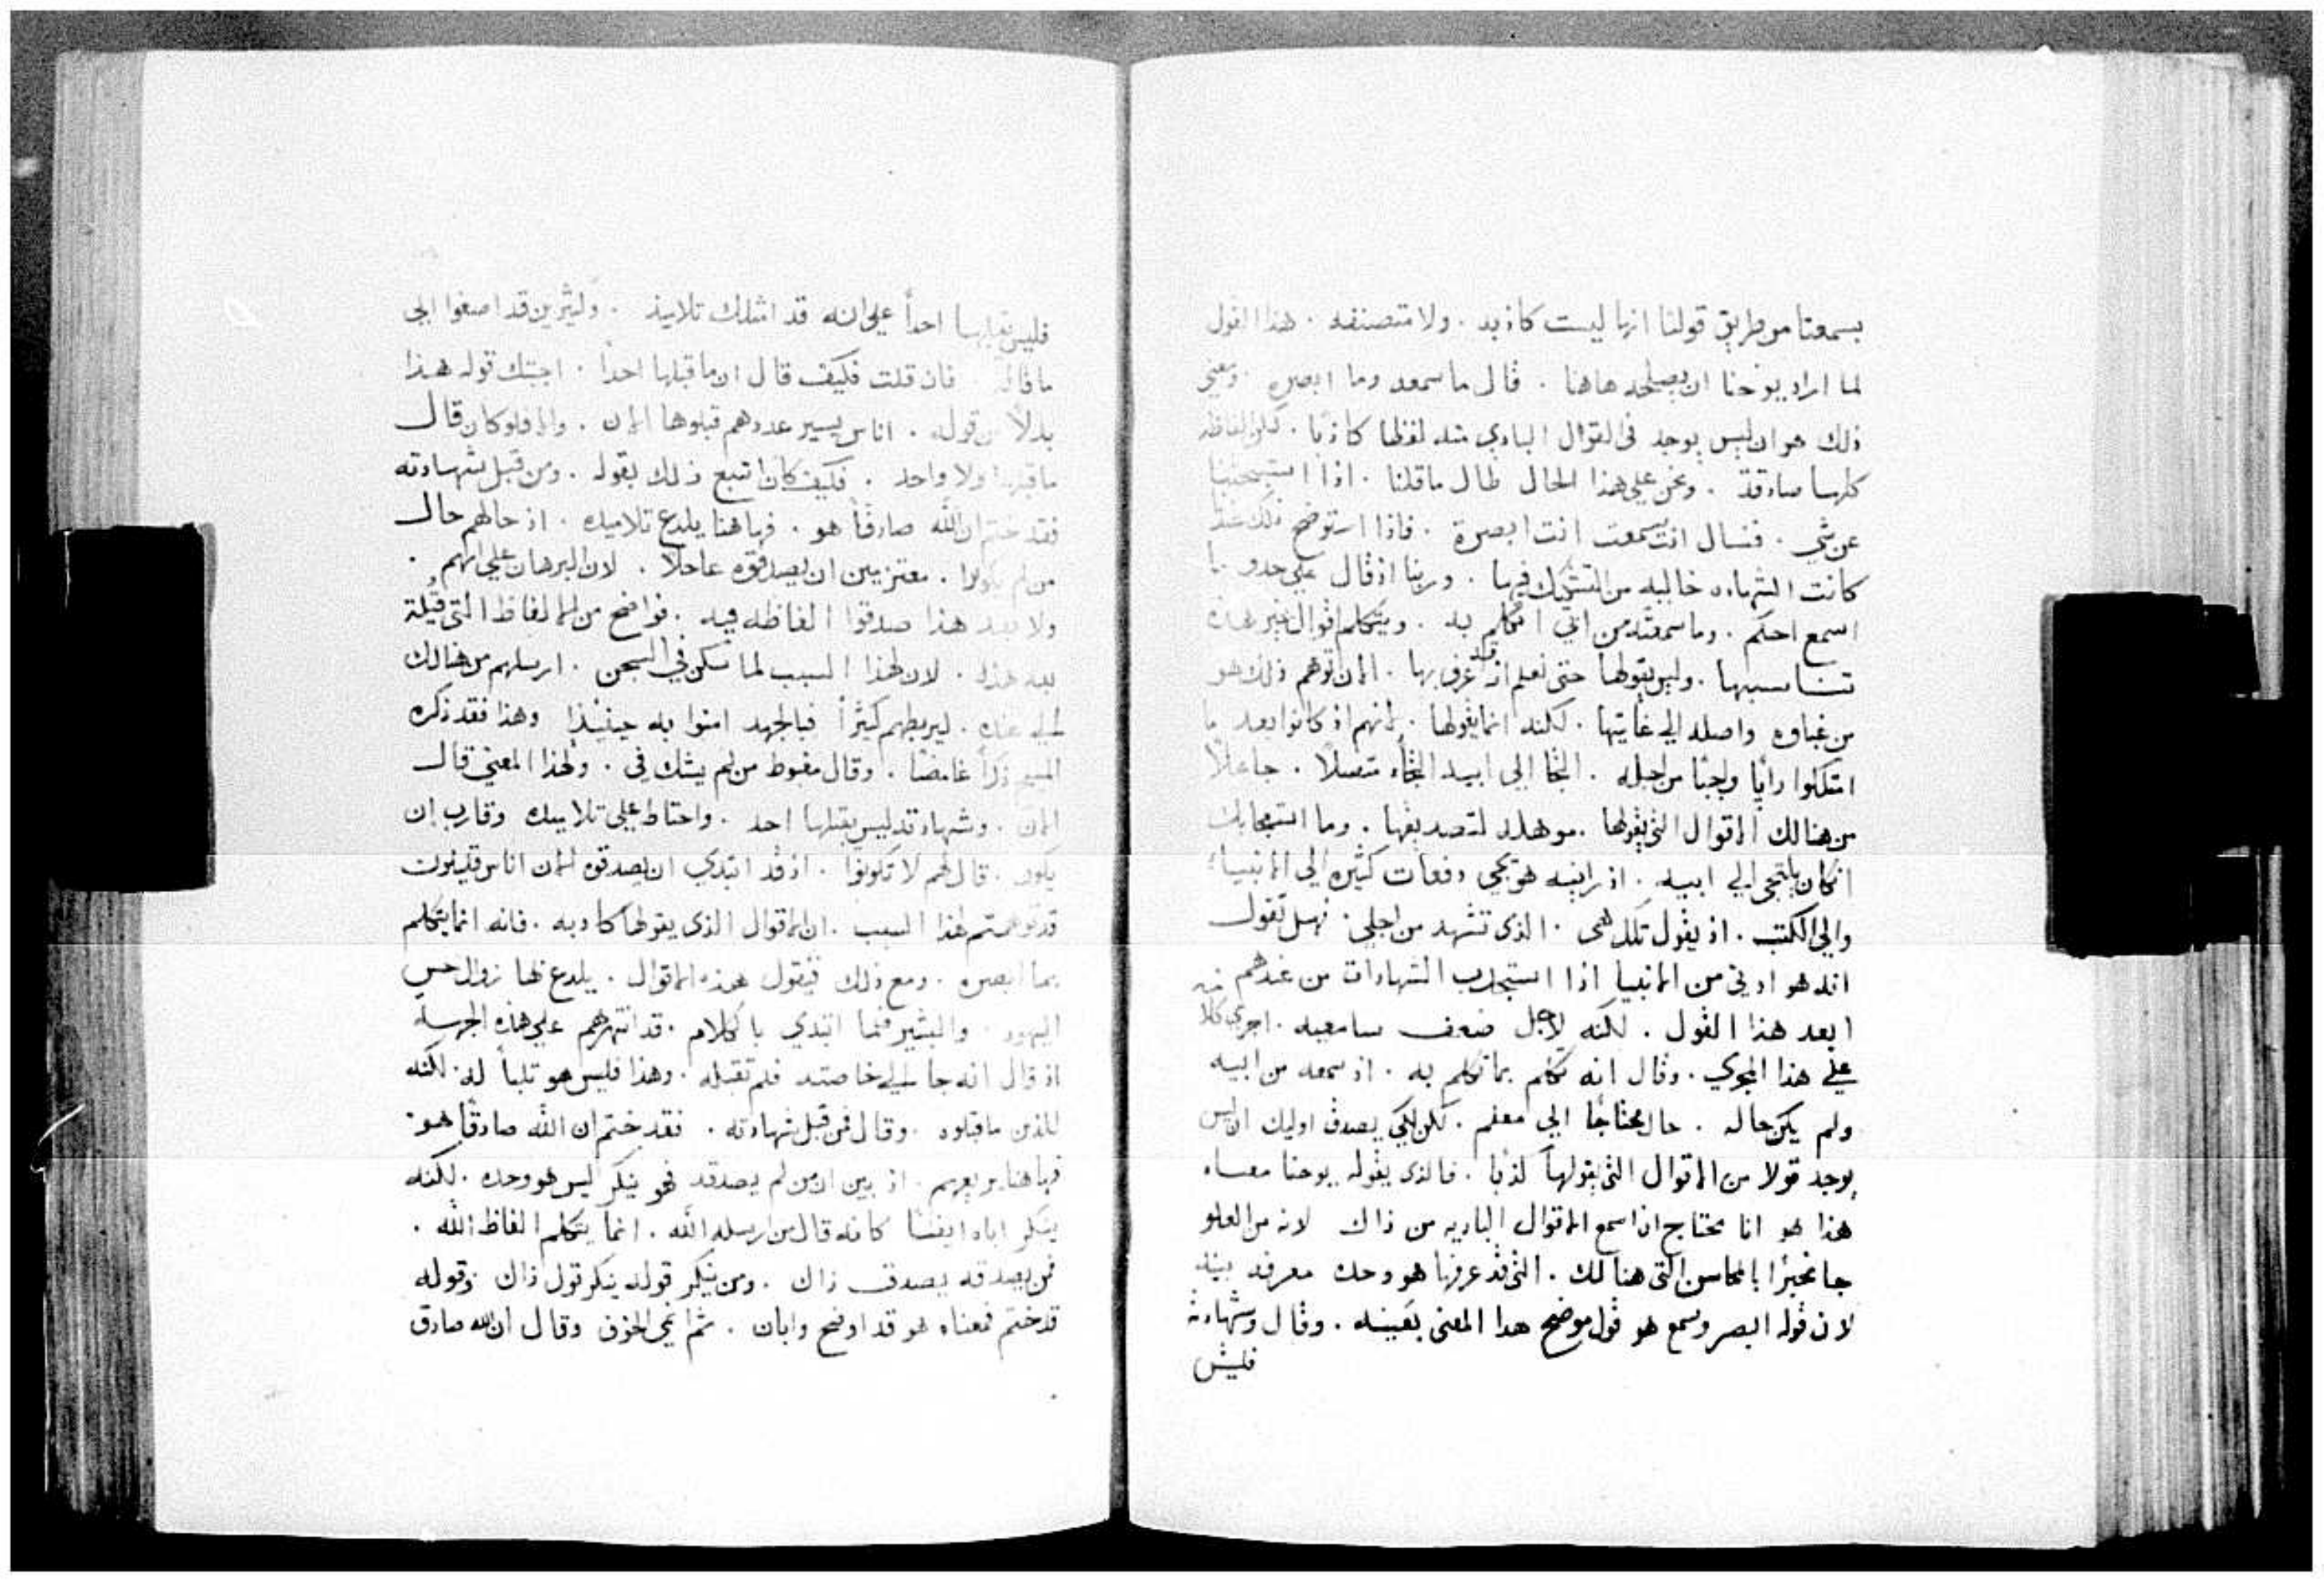 بسمعنا من طريق قولنا انها ليست كاذبه . ولا متصنفه . هذا القول
لما اراد يوحنا ان يصلحه هاهنا . قال ما سمعه وما ابصره ومعني
ذلك هو ان ليس يوجد في القوال البادي منه لفظا كاذبا . لكن الفاظه
كلها صادقة . ونحن علي هذا الحال طال ما قلنا . اذا استبحثنا
عن شي . فنسال انت سمعت انت ابصرة . فاذا استوضح ذلك عندنا
كانت الشهاده خالیه من التشكك فيها . وربنا اذ قال علي حدو ما
اسمع احكم . وما سمعته من ابي اتكلم به . ويتكلم اقوال غير هذه
تناسبها . وليس يقولها حتي نعلم انه قد عرف بها . الان توهم ذلك هو
من غباوه واصله الي غايتها . لكنه انما يقولها . لانهم اذ كانوا بعد ما
امتلكوا رايا واجبا من اجله . التجا الي ابيه التجاء متصلا . جاعلا
من هنالك الاقوال التي يقولها . موهله لتصديقها . وما استعجابك
ان كان يلتجي الي ابيه . اذ رايته هو يجي دفعات كثيره الي الانبياء
والي الكتب . اذ يقول تلك هي . الذي تشهد من اجلي . فهل تقول
انه هو ادني من الانبيا اذا استجلب الشهادات من عندهم
ابعد هذا القول . لكنه لاجل ضعف سامعيه . اجري كلامه
علي هذا المجري . وقال انه تكلم بما تكلم به . اذ سمعه من ابيه
ولم يكن حاله . حال محتاجا الي معلم . لكن لكي يصدق اوليك ان ليس
يوجد قولا من الاقوال التي يقولها كذبا . فالذي يقوله يوحنا معناه
هذا هو انا محتاج ان اسمع الاقوال الباديه من ذاك لانه من العلو
جا مخبرا بالمحاسن التي هنالك . التي قد عرفها هو وحده معرفه بينه
لان قوله ابصر وسمع هو قول موضح هدا المعني بعينه . وقال وشهادته
فليس
فليس يقبلها احدا علي انه قد امتلك تلاميذ . وكثيرين قد اصغوا الي
ما قاله فان قلت فكيف قال ان ما قبلها احدا . اجبتك قوله هذا
بدلا من قوله . اناس يسير عددهم قبلوها الان . والا فلو كان قال
ما قبلها ولا واحد . فكيف كان اتبع ذلك بقوله . ومن قبل شهادته
فقد ختم ان الله صادقا هو . فهاهنا يلدع تلاميده . اذ حالهم حال
من لم يكونوا . معتزمين ان يصدقوه عاجلا . لان البرهان علي انهم .
ولا بعد هذا صدقوا الفاظه فيه . فواضح من الالفاظ التي قيلة
بعد هذا . لان لهذا السبب لما سكن في السجن . ارسلهم من هنالك
الي عنده . ليربطهم كثيرا فبالجهد امنوا به حينيذا وهذا فقد ذكره
المسيح ذكرا غامضا . وقال مغبوط من لم يشك في . ولهذا المعني قال
الان . وشهادته ليس يقبلها احد . واحتاط علي تلاميده وقارب ان
يكون . قال لهم لا تكونوا . اذ قد ابتدي ان يصدقوه الان اناس قليلون
قد توهمتم لهذا السبب . ان الاقوال الذي يقولها كادبه . فانه انما يتكلم
بما ابصره . ومع ذلك فيقول هذه الاقوال . يلدع بها زوال حس
اليهود . والبشير فلما ابتدي بالكلام . قد انتهرهم علي هذه الجهة
اذ قال انه جا الي خاصته فلم تقبله . وهذا فليس هو تلبا له . لكنه
للذين ما قبلوه . وقال فمن قبل شهادته . فقد ختم ان الله صادقا هو .
فهاهنا يريعهم . اذ بين ان من لم يصدقه فهو ينكر ليس هو وحده . لكنه
ينكر اباه ايضا كانه قال من ارسله الله . انما يتكلم الفاظ الله .
فمن يصدقه يصدق ذاك . ومن ينكر قوله ينكر قول ذاك وقوله
قد ختم فمعناه هو قد اوضح وابان . ثم انمي الخوف وقال ان الله صادق